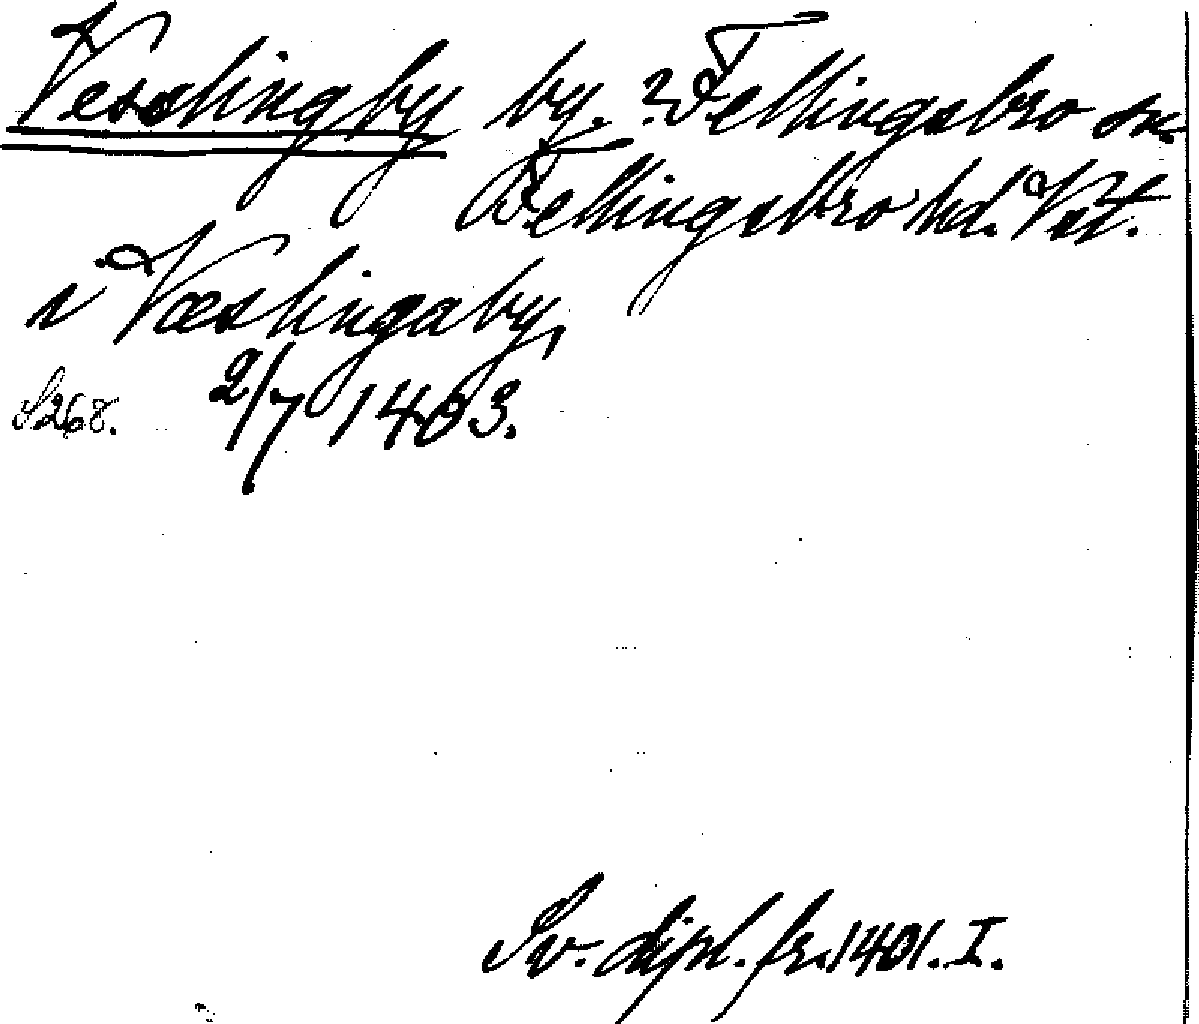 Vesslingby by. ? Fellingsbro sn.
Fellingsbro hd. Vst.
i Væslingaby,
S 268. 2/7 1403.
Sv. dipl. fr. 1401. I.